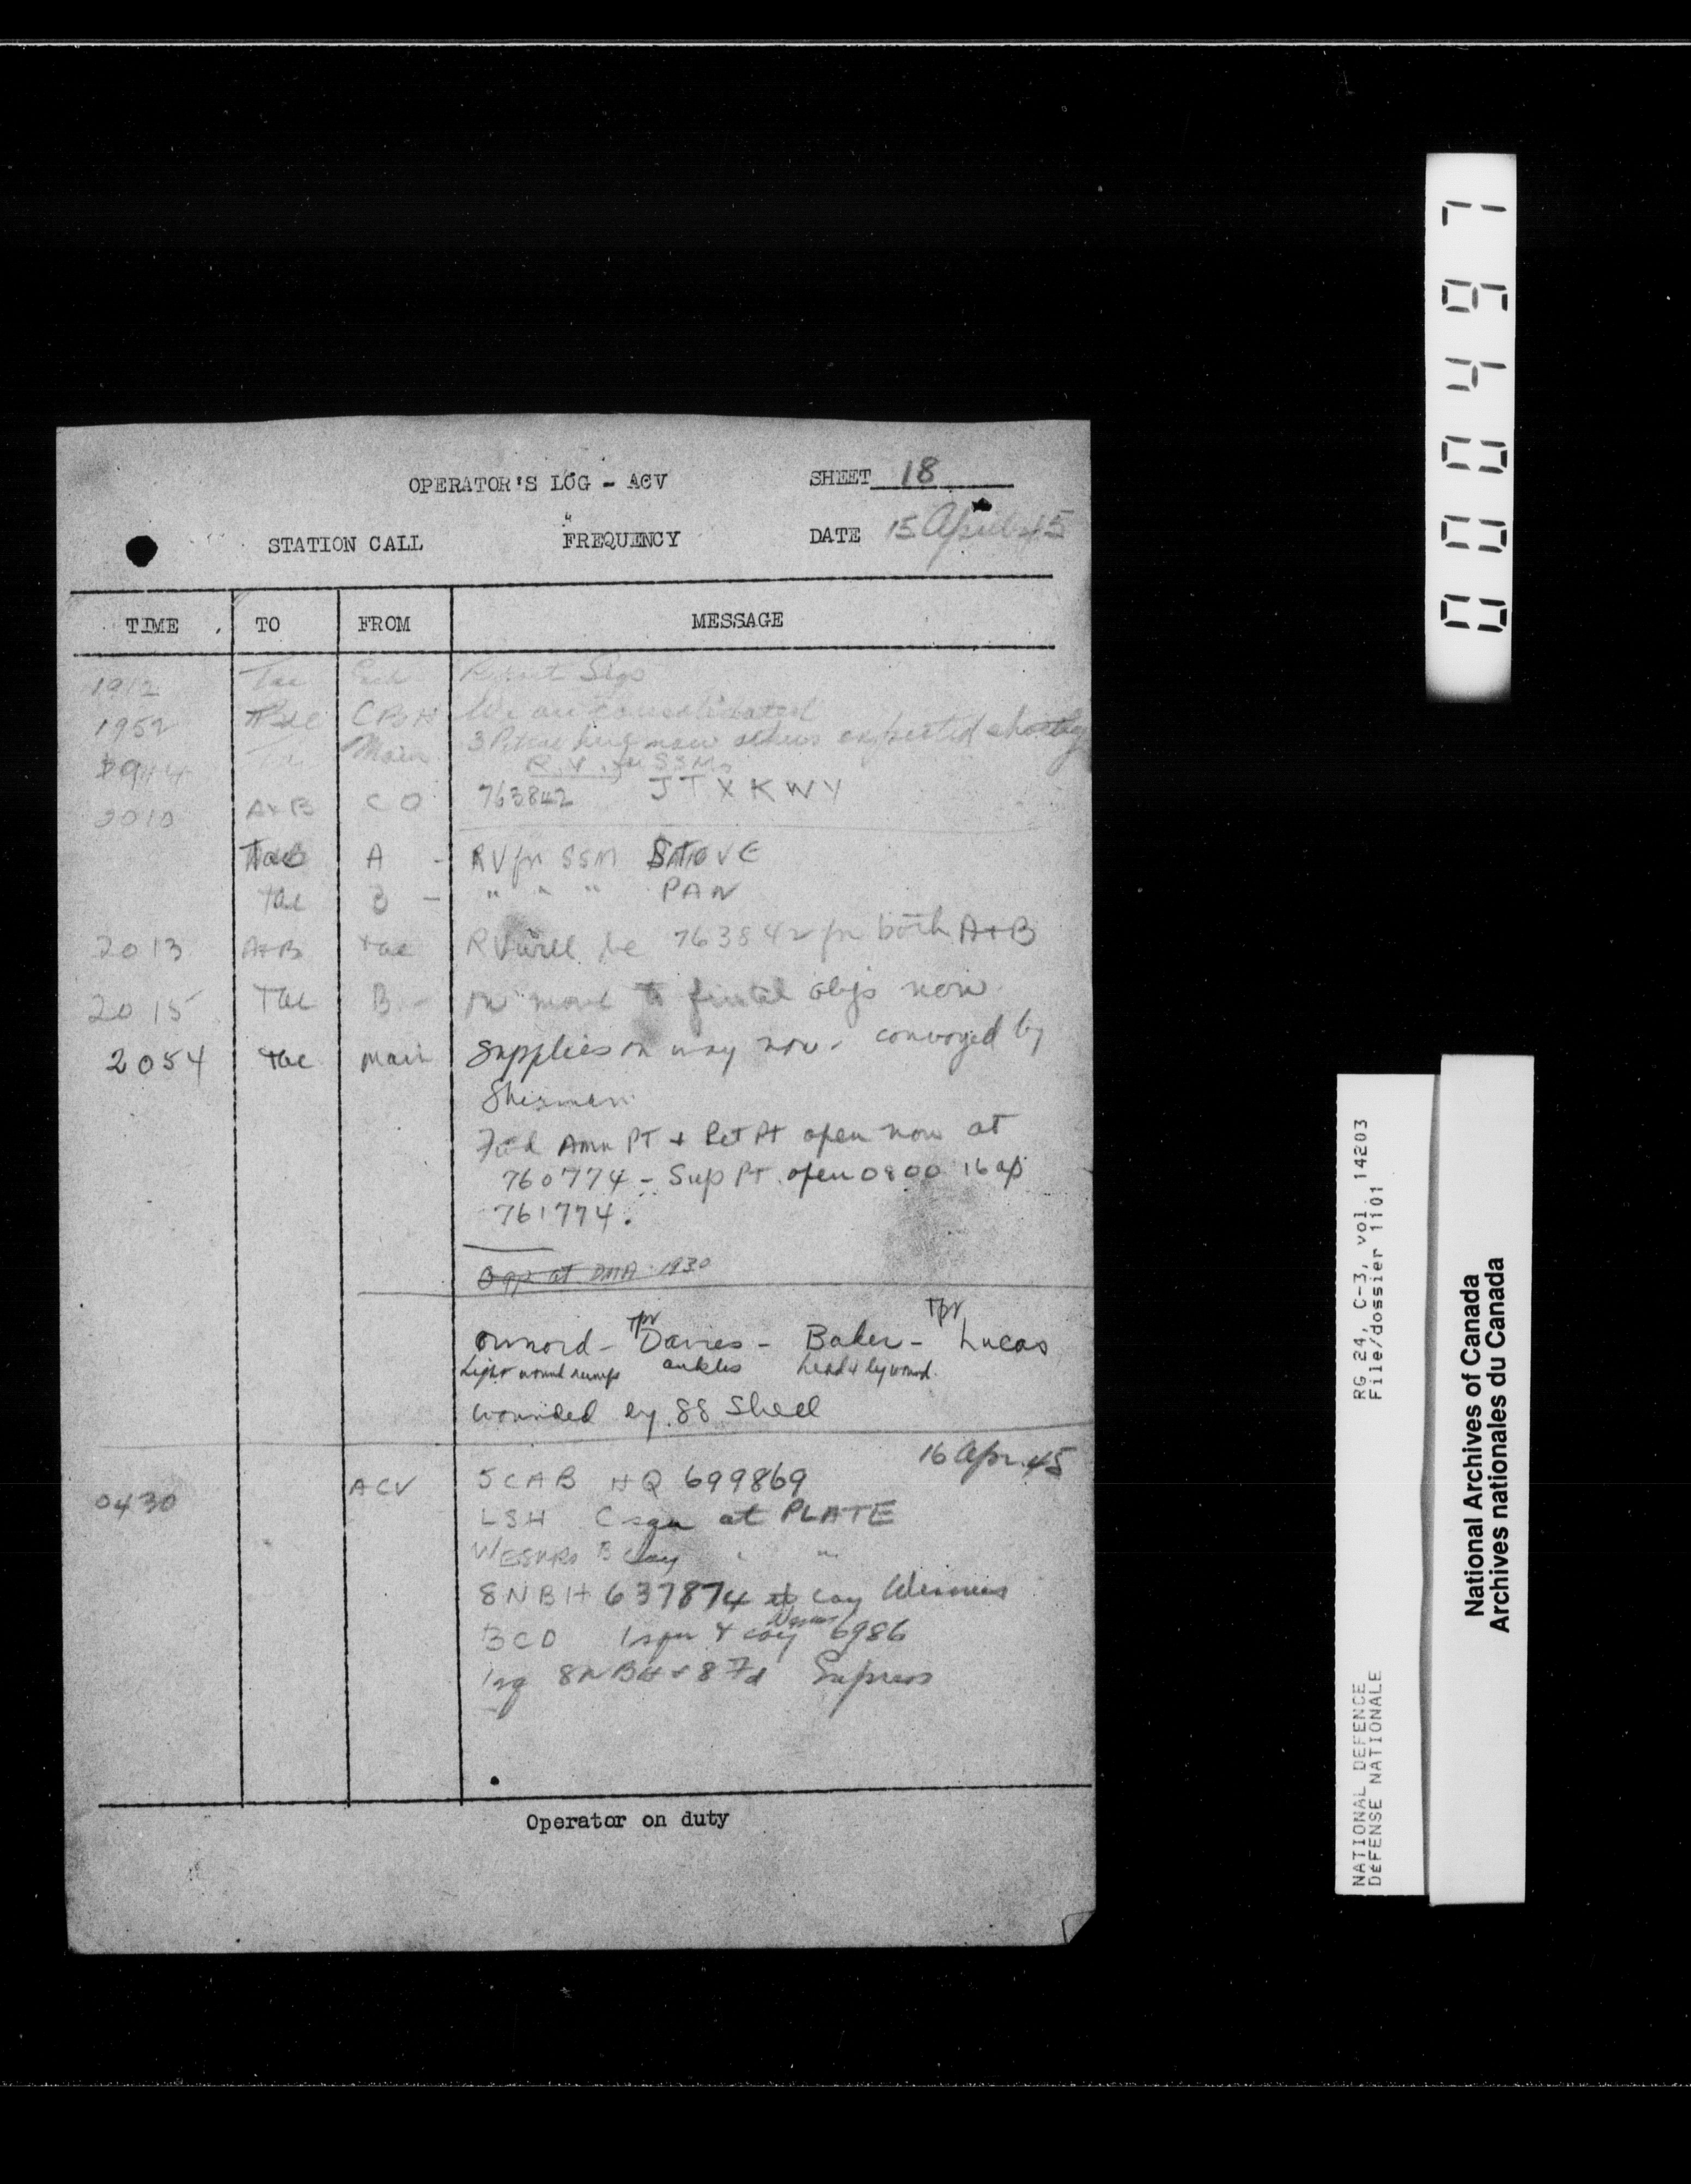 OPERATOR'S LOG - ACV SHEET 18
STATION CALL FREQUENCY DATE 15 April 45
TIME TO FROM MESSAGE
1912 Tac Report Sigs
1952 Tac CBH We are consolidated
Main 3 Petrol here now others expected shortly
R.V. for SSMs
2010 A+B CO 763842 JTXKWY
Tac A - RV for SSM STOVE
Tac B - " " " PAN
2013 A+B Tac RV will be 763842 for both A+B
2015 Tac B - on move to final objs now
2054 Tac Main Supplies on way now. convoyed by
Sherman
Fwd Amn PT + Pet Pt open now at
760774 - Sup Pt. open 0800 16 ap
761774.
Opp at DMA 1930
Ormord - Tpr Davies - Baker - Tpr Lucas
Light wound rump ankles head & leg wound.
wounded by 88 Shell
16 Apr. 45
0430 ACV 5 CAB HQ 699869
LSH C sqn at PLATE
WESNRS B Coy " "
8NBH 637874 coy
BCD 1 sqn + coy 6986
1 sq 8NBH + 8 Fd
Operator on duty
0000497
NATIONAL DEFENCE RG 24, C-3, vol. 14203
DÉFENSE NATIONALE File/dossier 1101
National Archives of Canada
Archives nationales du Canada